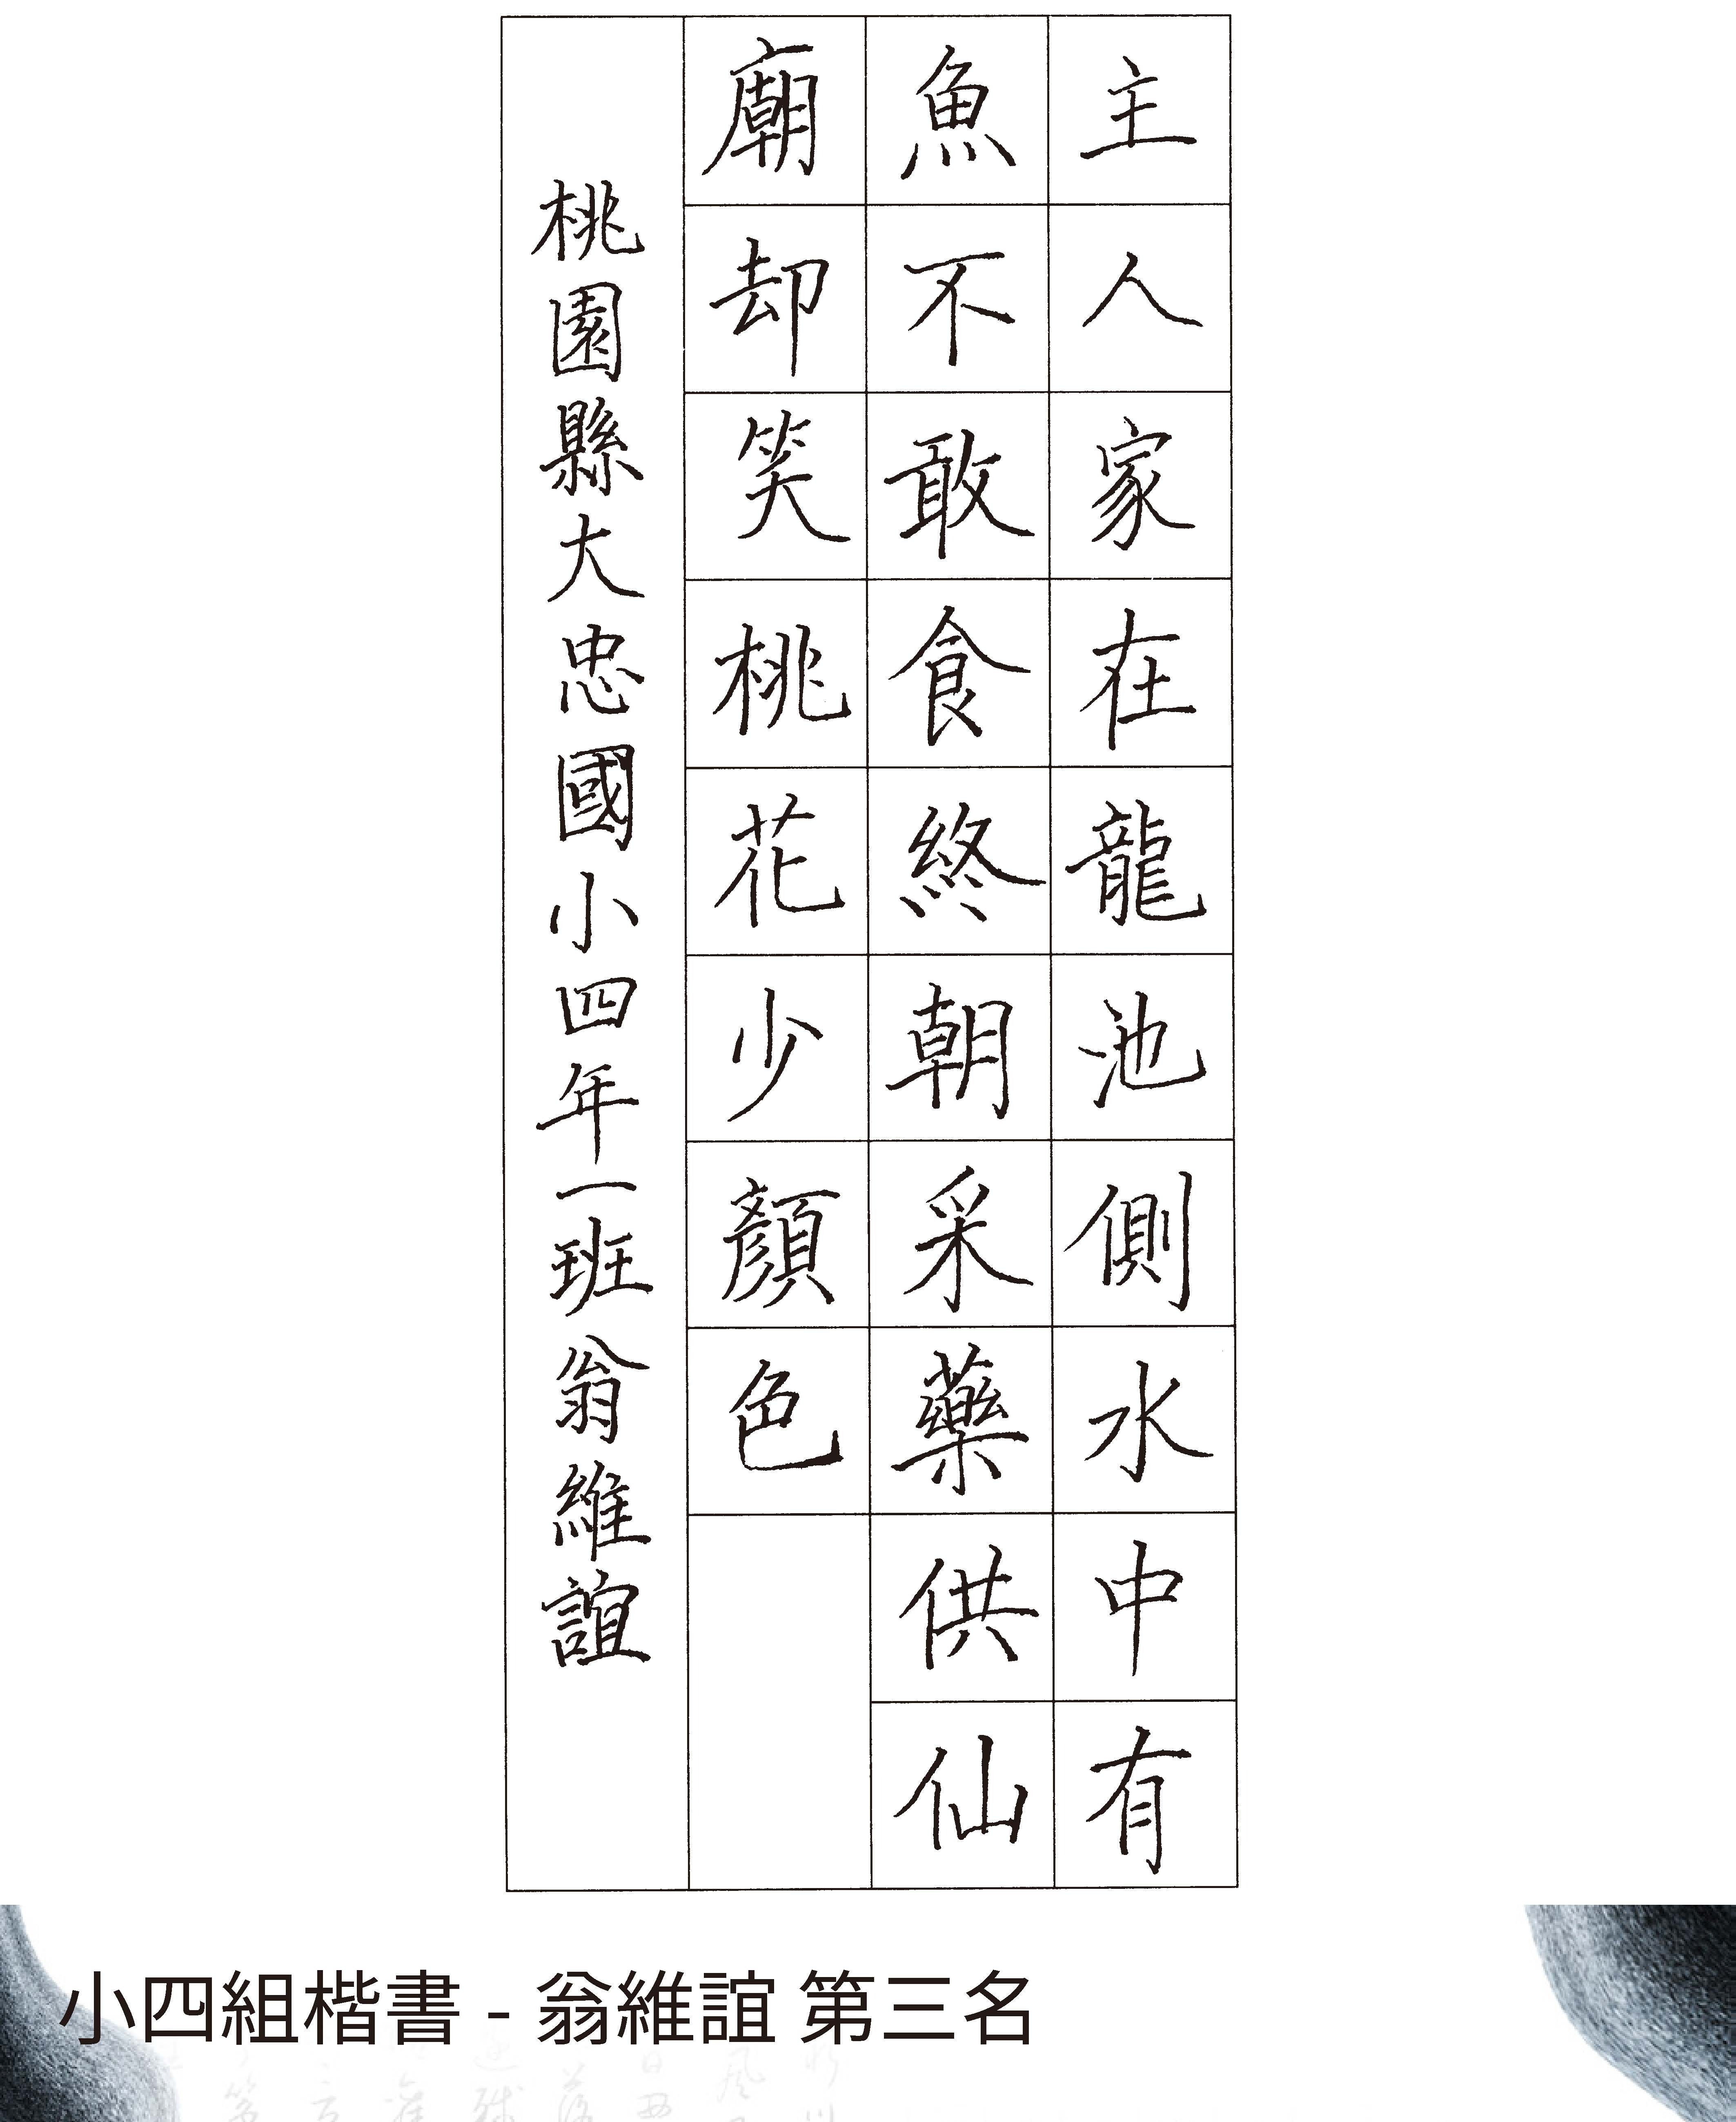 主人家在龍池側水中有
魚不敢食終朝采藥供仙
廟却笑桃花少顏色
桃園縣大忠國小四年一班翁維誼
小四組楷書 - 翁維誼 第三名